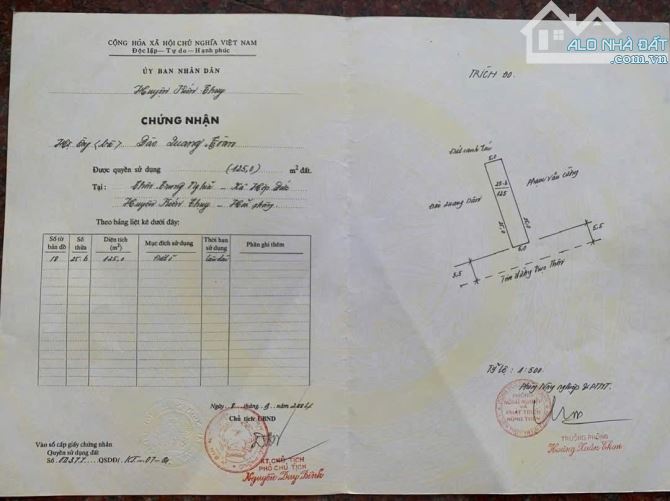 CỘNG HÒA XÃ HỘI CHỦ NGHĨA VIỆT NAM
Độc lập - Tự do - Hạnh phúc
ỦY BAN NHÂN DÂN
Huyện Kiến Thụy
CHỨNG NHẬN
Hộ ông (bà) Đào Quang
Được quyền sử dụng (125,0) m² đất.
Tại : Thôn Trung Nghĩa - Xã
Huyện Kiến Thụy - Hải Phòng
Theo bảng liệt kê dưới đây:
Số tờ bản đồ
Số thửa
Diện tích (m²)
Mục đích sử dụng
Thời hạn sử dụng
Phần ghi thêm
18 25.b 125,0 Đất ở Lâu dài
Ngày tháng
Chủ tịch UBND
KT. CHỦ TỊCH
PHÓ CHỦ TỊCH
Nguyễn Duy
Vào sổ cấp giấy chứng nhận
Quyền sử dụng đất
Số QSDĐ/
ALO NHÀ ĐẤT
.com.vn
TRÍCH ĐO
Đất canh tác
5,0
Phạm Văn
25.b
125
Đào Quang
25,0
5,0
5,5
5,5
Tỷ lệ 1:500
Phòng Nông nghiệp & PTNT
PHÒNG
NÔNG NGHIỆP
VÀ
PHÁT TRIỂN
NÔNG THÔN
TRƯỞNG PHÒNG
Hoàng Xuân